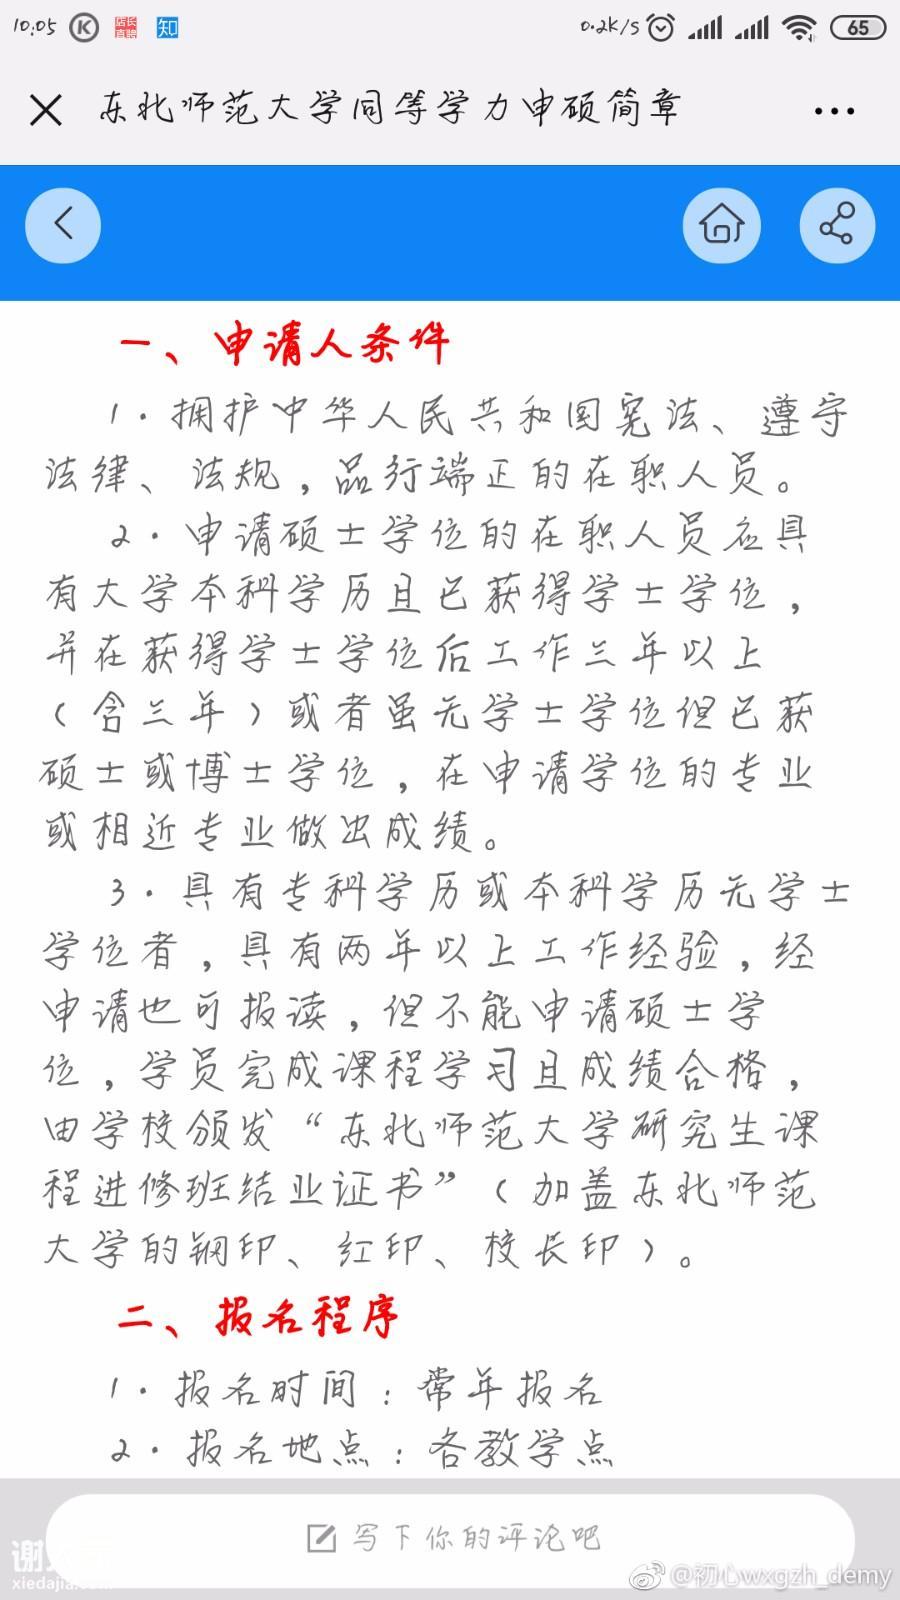 10:05
K
店长直聘
知
0.2K/S
65
东北师范大学同等学力申硕简章
一、申请人条件
1.拥护中华人民共和国宪法、遵守
法律、法规，品行端正的在职人员。
2.申请硕士学位的在职人员应具
有大学本科学历且已获得学士学位，
并在获得学士学位后工作三年以上
（含三年）或者虽无学士学位但已获
硕士或博士学位，在申请学位的专业
或相近专业做出成绩。
3.具有专科学历或本科学历无学士
学位者，具有两年以上工作经验，经
申请也可报读，但不能申请硕士学
位，学员完成课程学习且成绩合格，
由学校颁发“东北师范大学研究生课
程进修班结业证书”（加盖东北师范
大学的钢印、红印、校长印）。
二、报名程序
1.报名时间：常年报名
2.报名地点：各教学点
写下你的评论吧
谢
xiedajia.com
@初心wxgzh_demy